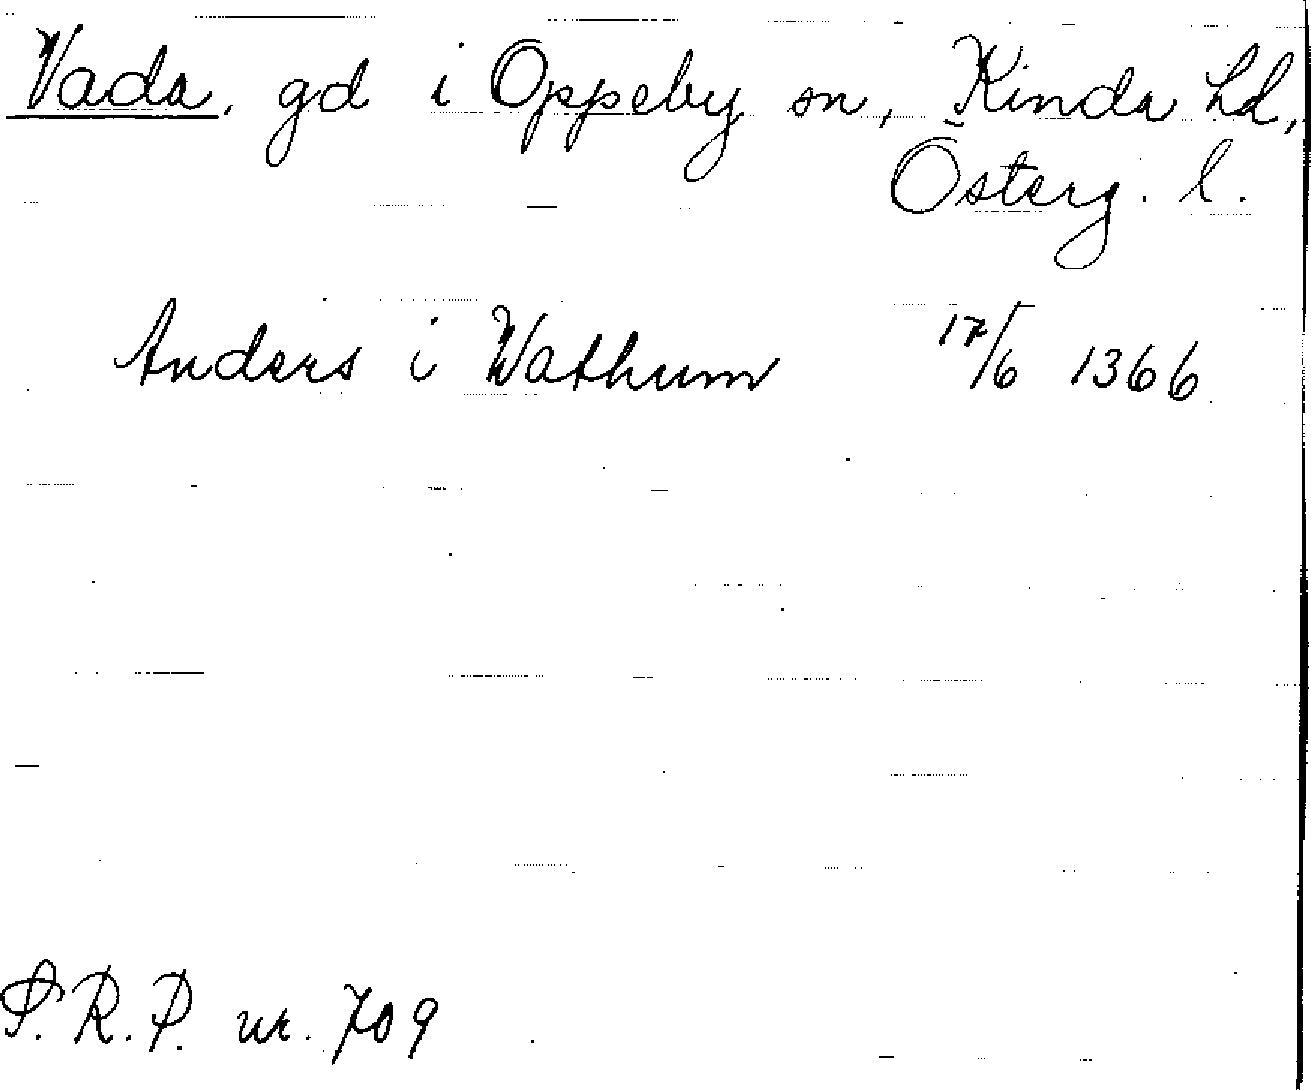 Vada, gd i Oppeby sn, Kinda hd,
Österg. l.
Anders i Wathum 17/6 1366
S.R.P. nr. 709